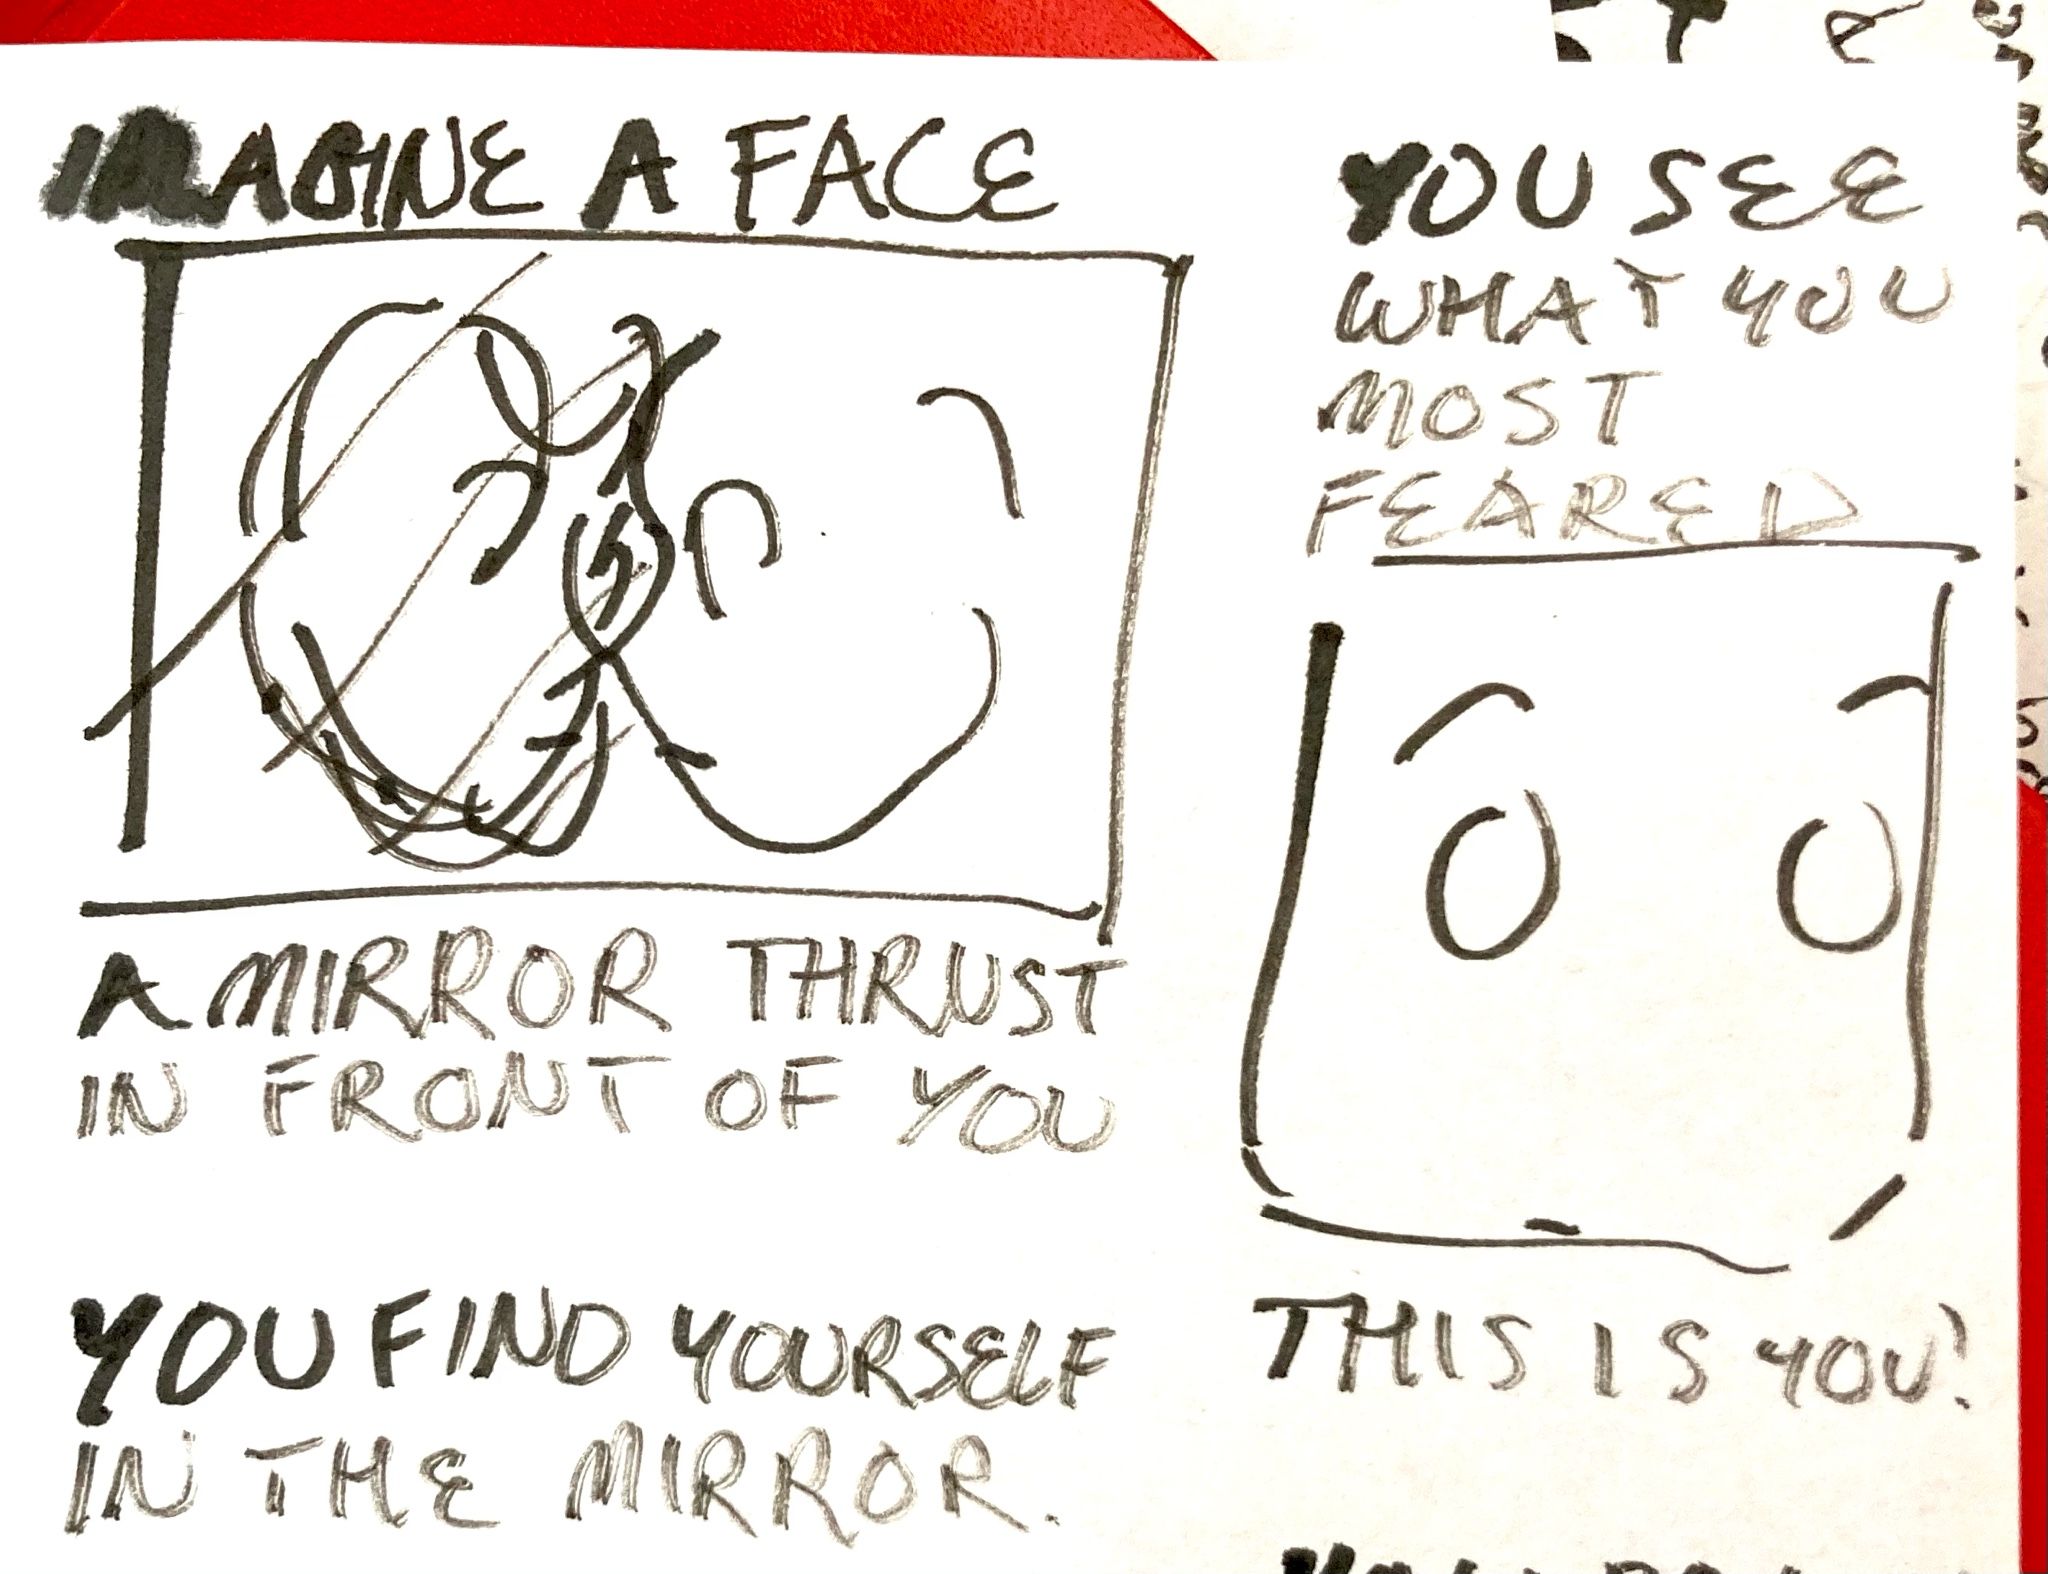 IMAGINE A FACE
A MIRROR THRUST
IN FRONT OF YOU
YOU FIND YOURSELF
IN THE MIRROR.
YOU SEE
WHAT YOU
MOST
FEARED
THIS IS YOU!